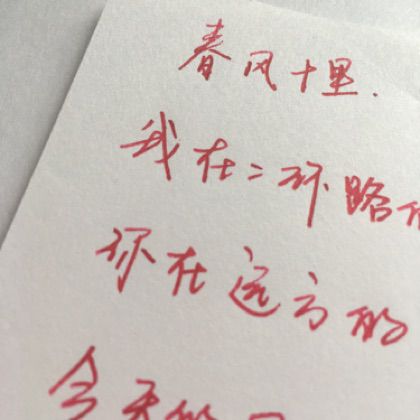 春风十里.
我在二环路
你在远方的
今天的